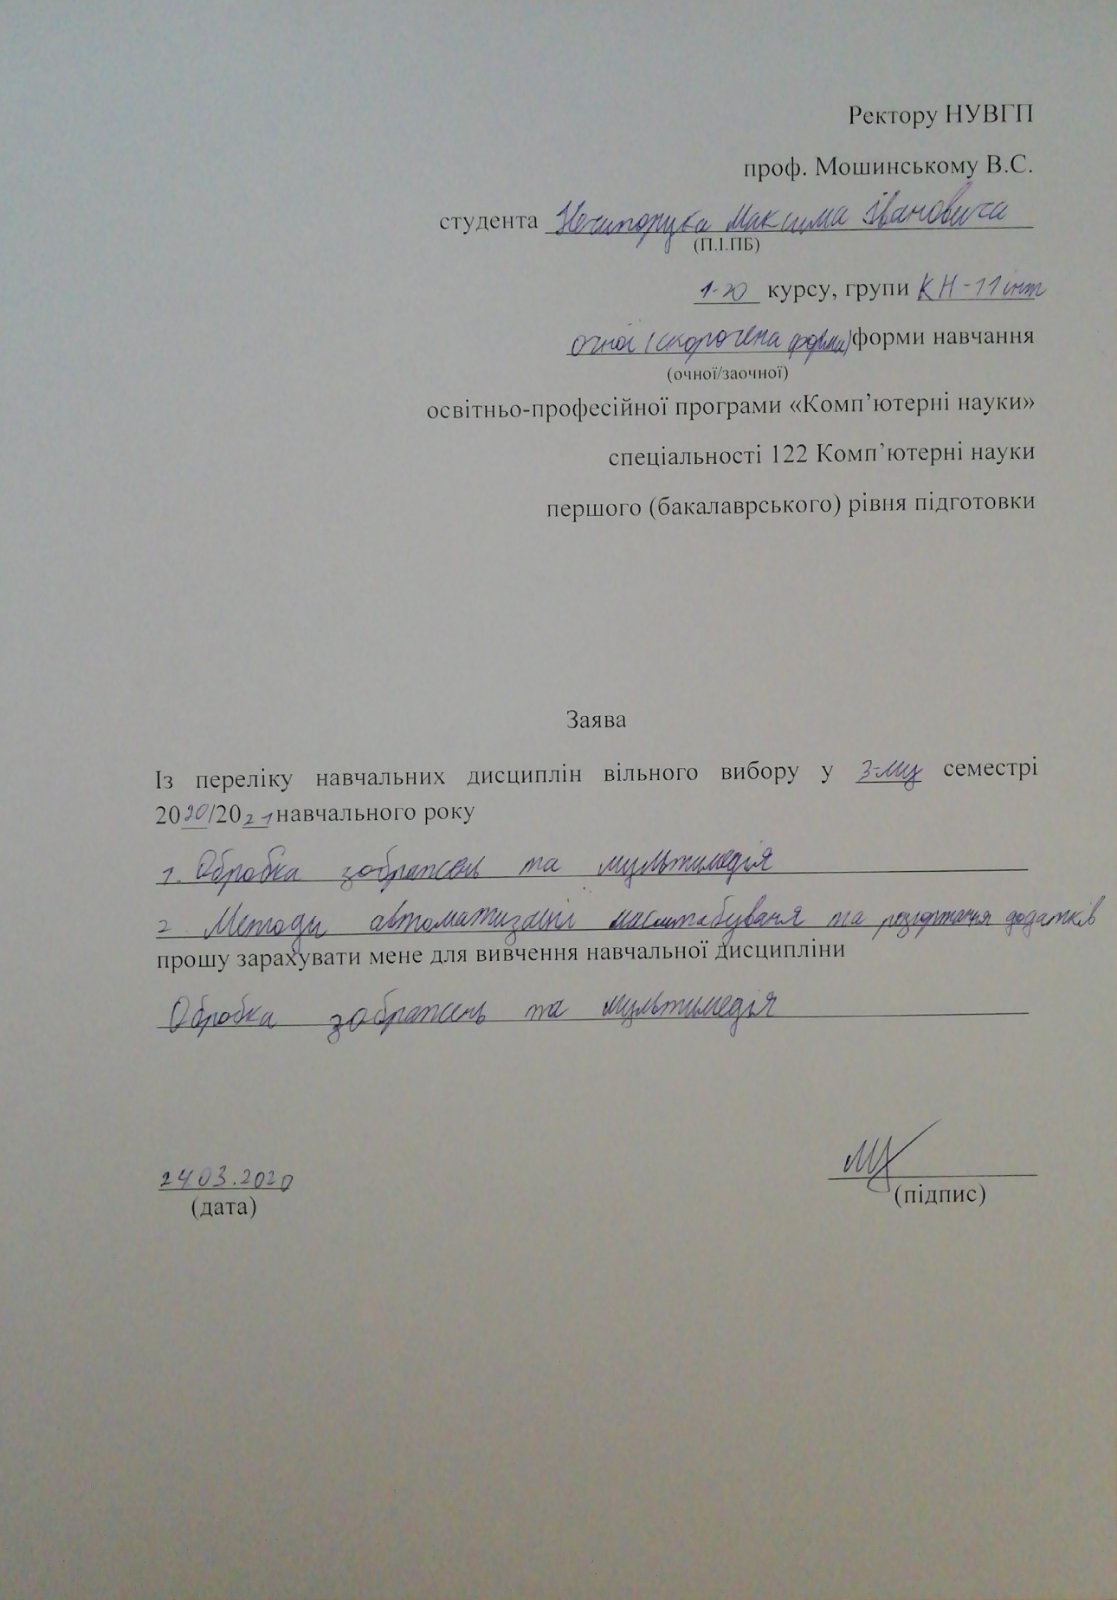 Ректору НУВГП
проф. Мошинському В.С.
студента Нечипорука Максима Івановича
(П.І.ПБ)
1-го курсу, групи КН-11інт
очної (скорочена форма) форми навчання
(очної/заочної)
освітньо-професійної програми «Комп’ютерні науки»
спеціальності 122 Комп’ютерні науки
першого (бакалаврського) рівня підготовки
Заява
Із переліку навчальних дисциплін вільного вибору у 3-му семестрі
2020/2021 навчального року
1. Обробка зображень та мультимедія
2 Методи автоматизації масштабуваня та розгортання додатків
прошу зарахувати мене для вивчення навчальної дисципліни
Обробка зображень та мультимедія
24 03.2020
(дата)
(підпис)